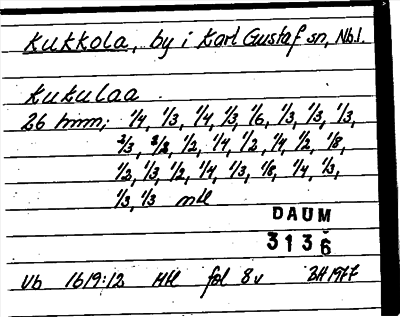 Kukkola, by i Karl Gustaf sn, Nb.l.
Kukulaa
26 hmn; 1/4, 1/3, 1/4, 1/3, 1/6, 1/3, 1/3, 1/3,
2/3, 3/2, 1/2, 1/4, 1/2, 1/4, 1/2, 1/8,
1/2, 1/3, 1/2, 1/4, 1/3, 1/8, 1/4, 1/3,
1/3, 1/3 mtl
DAUM
3136
Vb 1619:12 HH fol 8v BH 1977